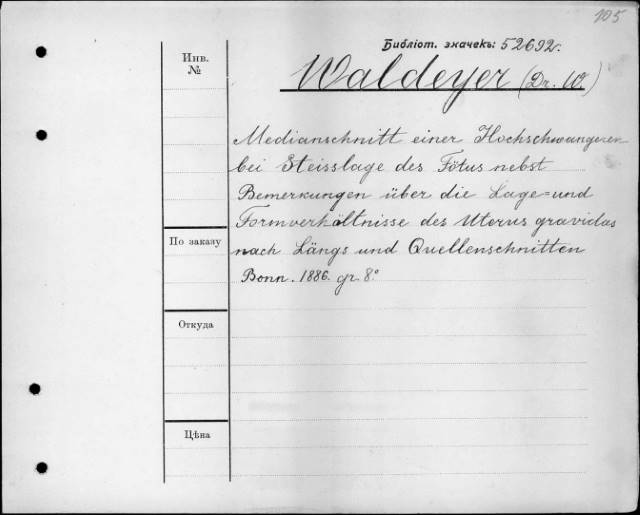 105
Библіот. значекъ: 52692.
Инв.
№
Waldeyer (Dr. W.)
Medianschnitt einer Hochschwangeren
bei Steisslage des Fötus nebst
Bemerkungen über die Lage= und
Formverhältnisse des Uterus gravidus
По заказу
nach Längs und Quellenschnitten
Bonn. 1886. gr. 8º
Откуда
Цѣна